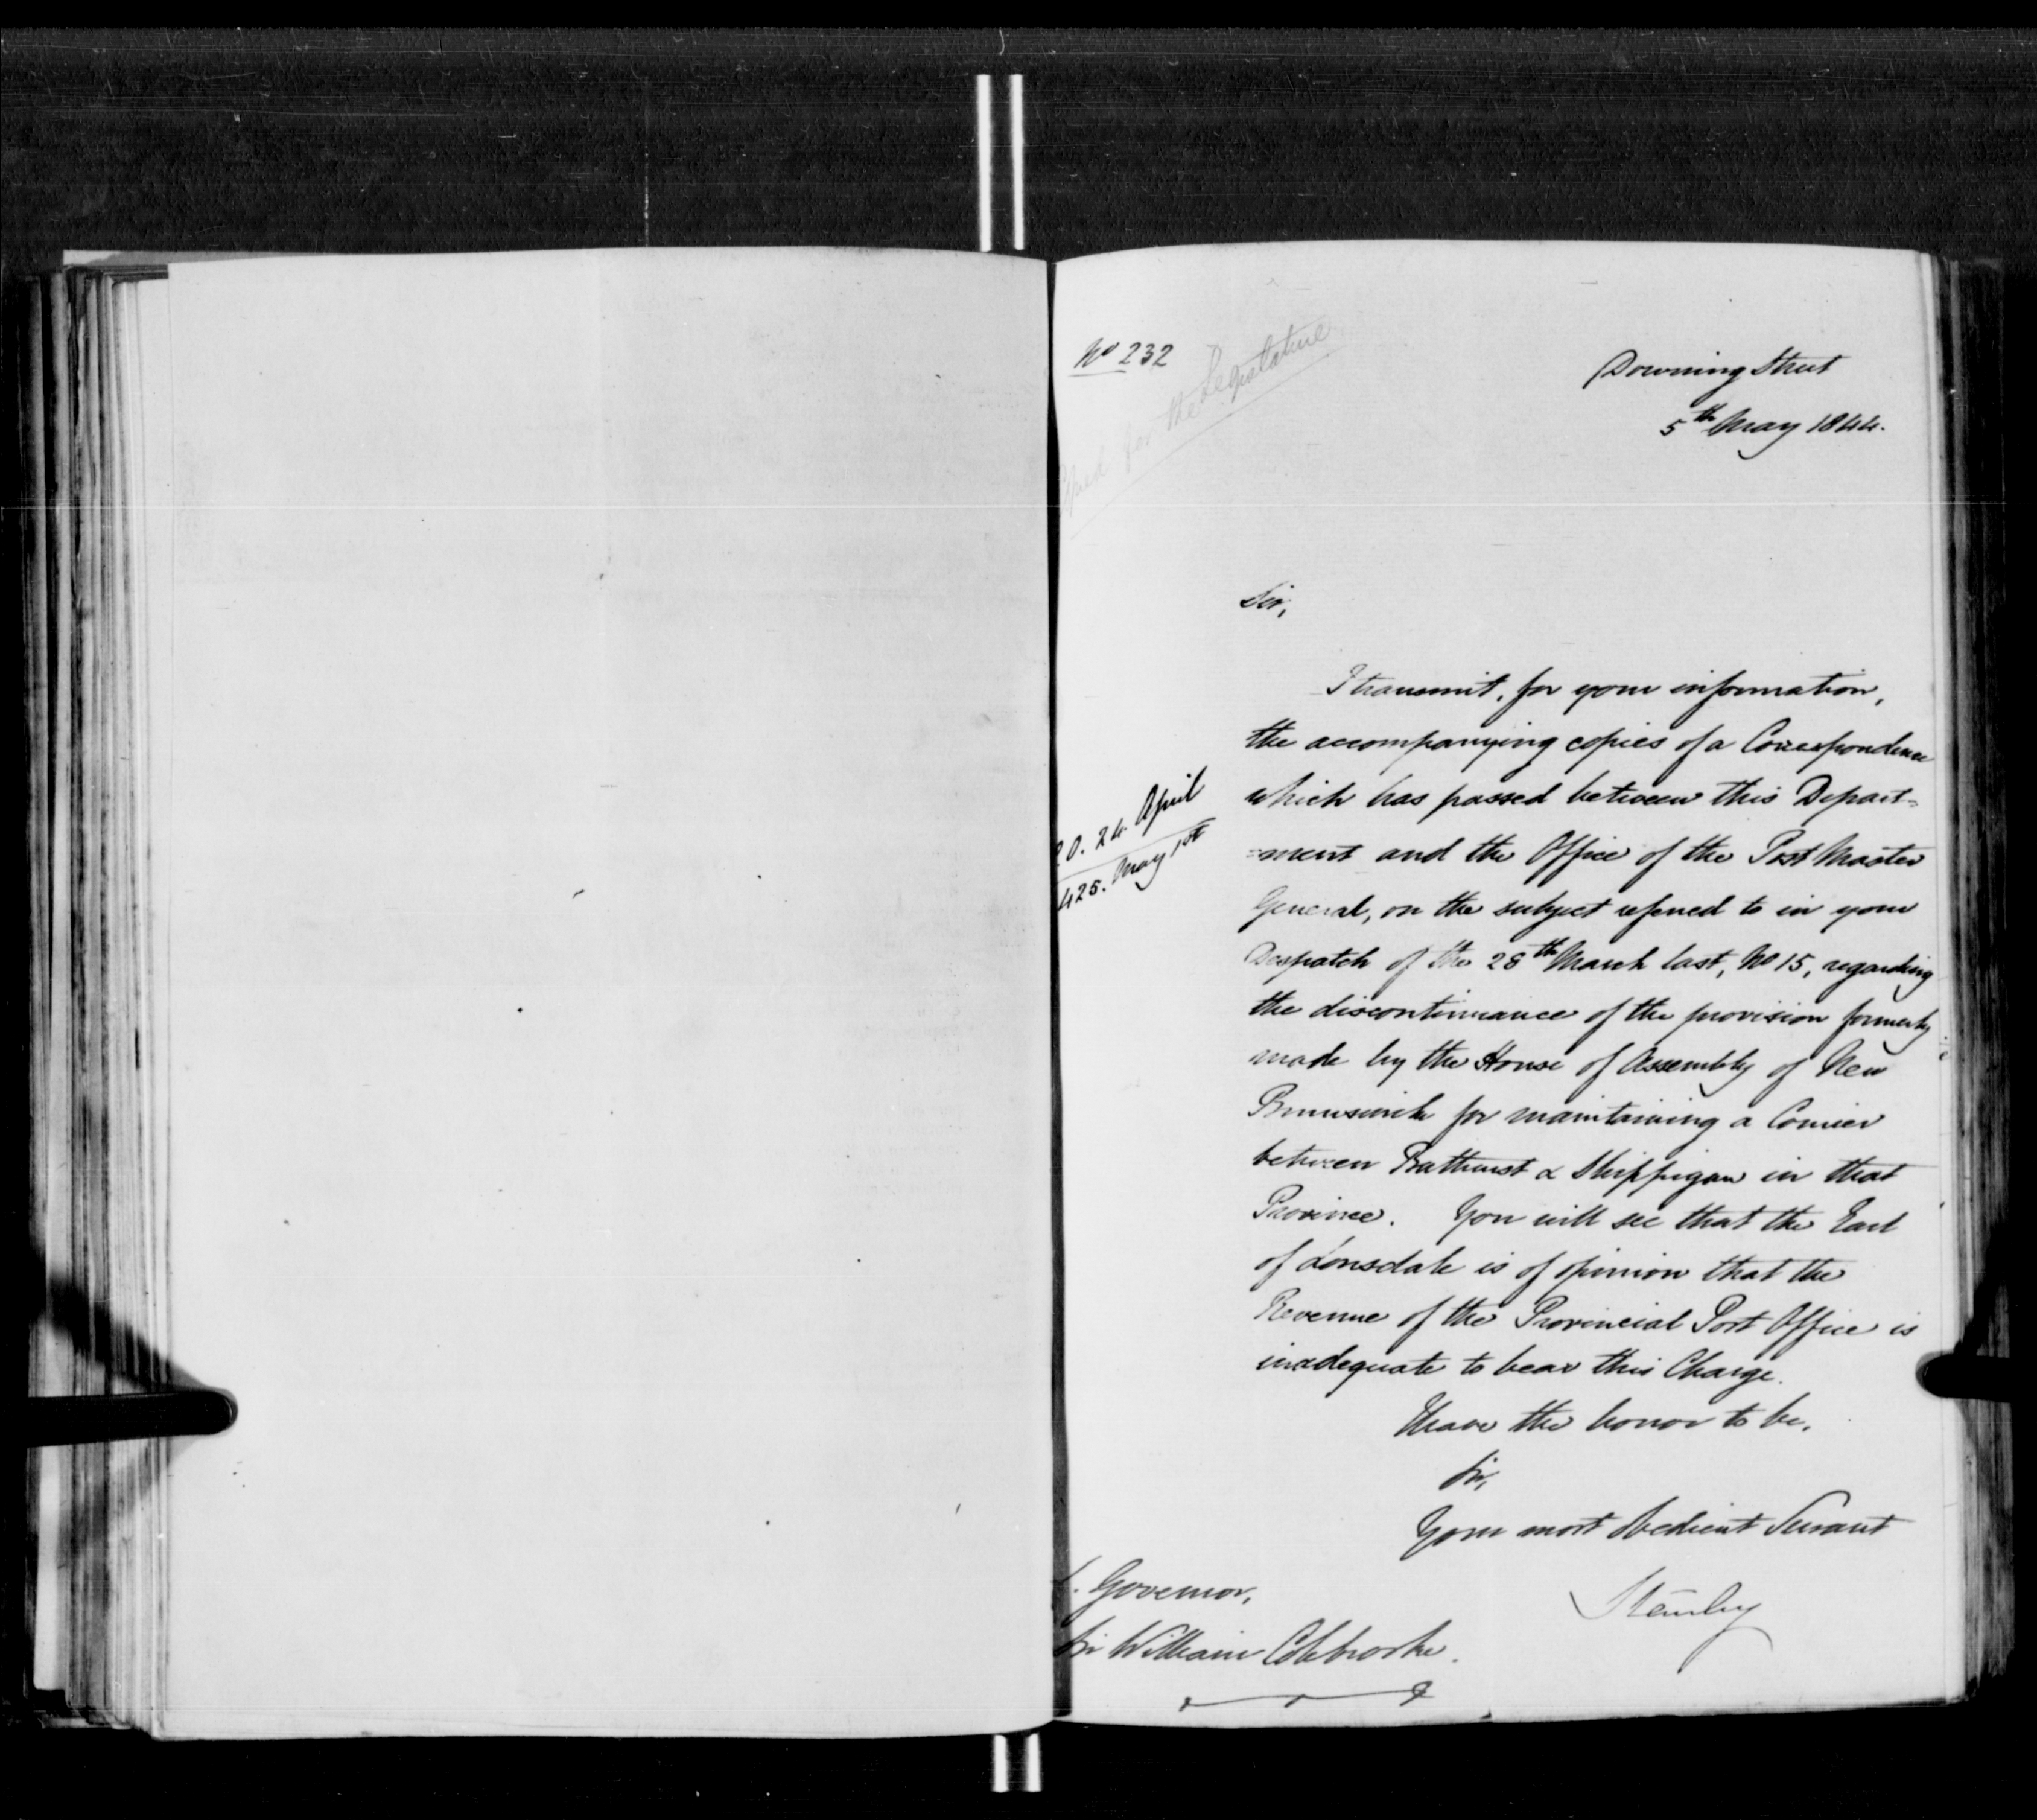 No 232
for the Legislature
Downing Street
5th May 1844.
Sir,
I transmit, for your information,
the accompanying copies of a Correspondence
which has passed between this Depart=
=ment and the Office of the Post Master
General, on the subject referred to in your
Despatch of the 28th March last, No 15, regarding
the discontinuance of the provision formerly
made by the House of Assembly of New
Brunswick for maintaining a Courier
between Bathurst & Shippigan in that
Province. You will see that the Earl
of Lonsdale is of opinion that the
Revenue of the Provincial Post Office is
inadequate to bear this Charge.
I have the honor to be,
Sir,
Your most obedient Servant
Stanley
O. 24 April
425. May 1st
Governor,
Sir William Colebrooke.